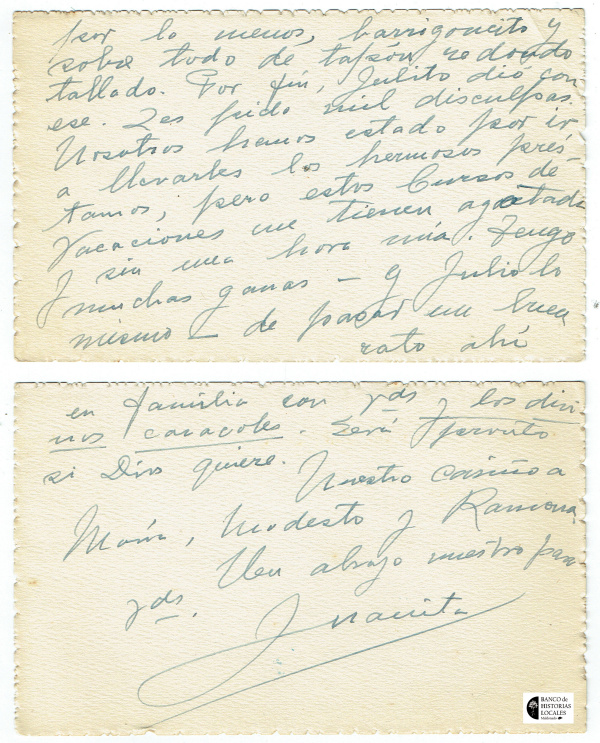 por lo menos, barrigoncito y
sobre todo de tapón redondo
tallado. Por fin, Julito dió con
ese. Les pido mil disculpas.
Nosotros hemos estado por ir
a llevarles los hermosos prés-
tamos, pero estos Cursos de
Vacaciones me tienen agotada
y sin una hora mía. Tengo
muchas ganas - y Julio lo
mismo - de pasar un buen
rato ahí
en familia con Vds y los divi-
nos caracoles. Será pronto
si Dios quiere.
Nuestro cariño a
María, Modesto y Ramona.
Un abrazo nuestro para
Vds.
Juanita
BANCO de
HISTORIAS
LOCALES
Maldonado